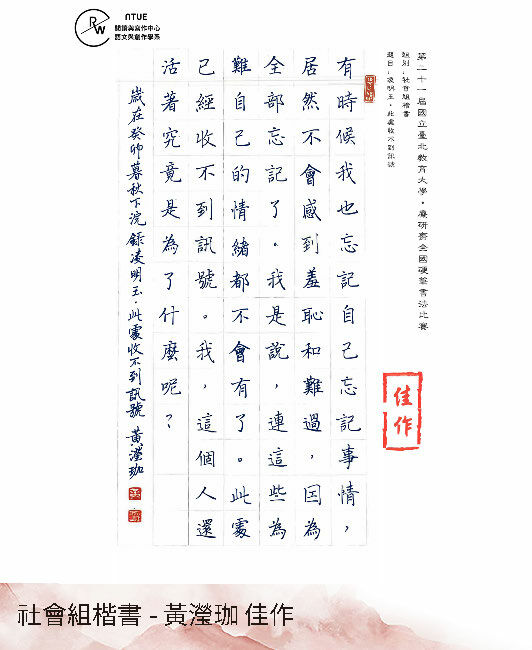 NTUE
RW
閱讀與寫作中心
語文與創作學系
第二十一屆國立臺北教育大學．麋研齋全國硬筆書法比賽
組別：社會組楷書
題目：凌明玉．此處收不到訊號
有時候我也忘記自己忘記事情，
居然不會感到羞恥和難過，因為
全部忘記了。我是說，連這些為
難自己的情緒都不會有了。此處
已經收不到訊號。我，這個人還
活著究竟是為了什麼呢？
歲在癸卯暮秋下浣 錄凌明玉．此處收不到訊號 黃瀅珈
佳作
社會組楷書 - 黃瀅珈 佳作